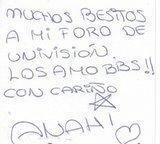 MUCHOS BESITOS
A MI FORO DE
UNIVISIÓN.
LOS AMO BBS!!
CON CARIÑO
ANAHI